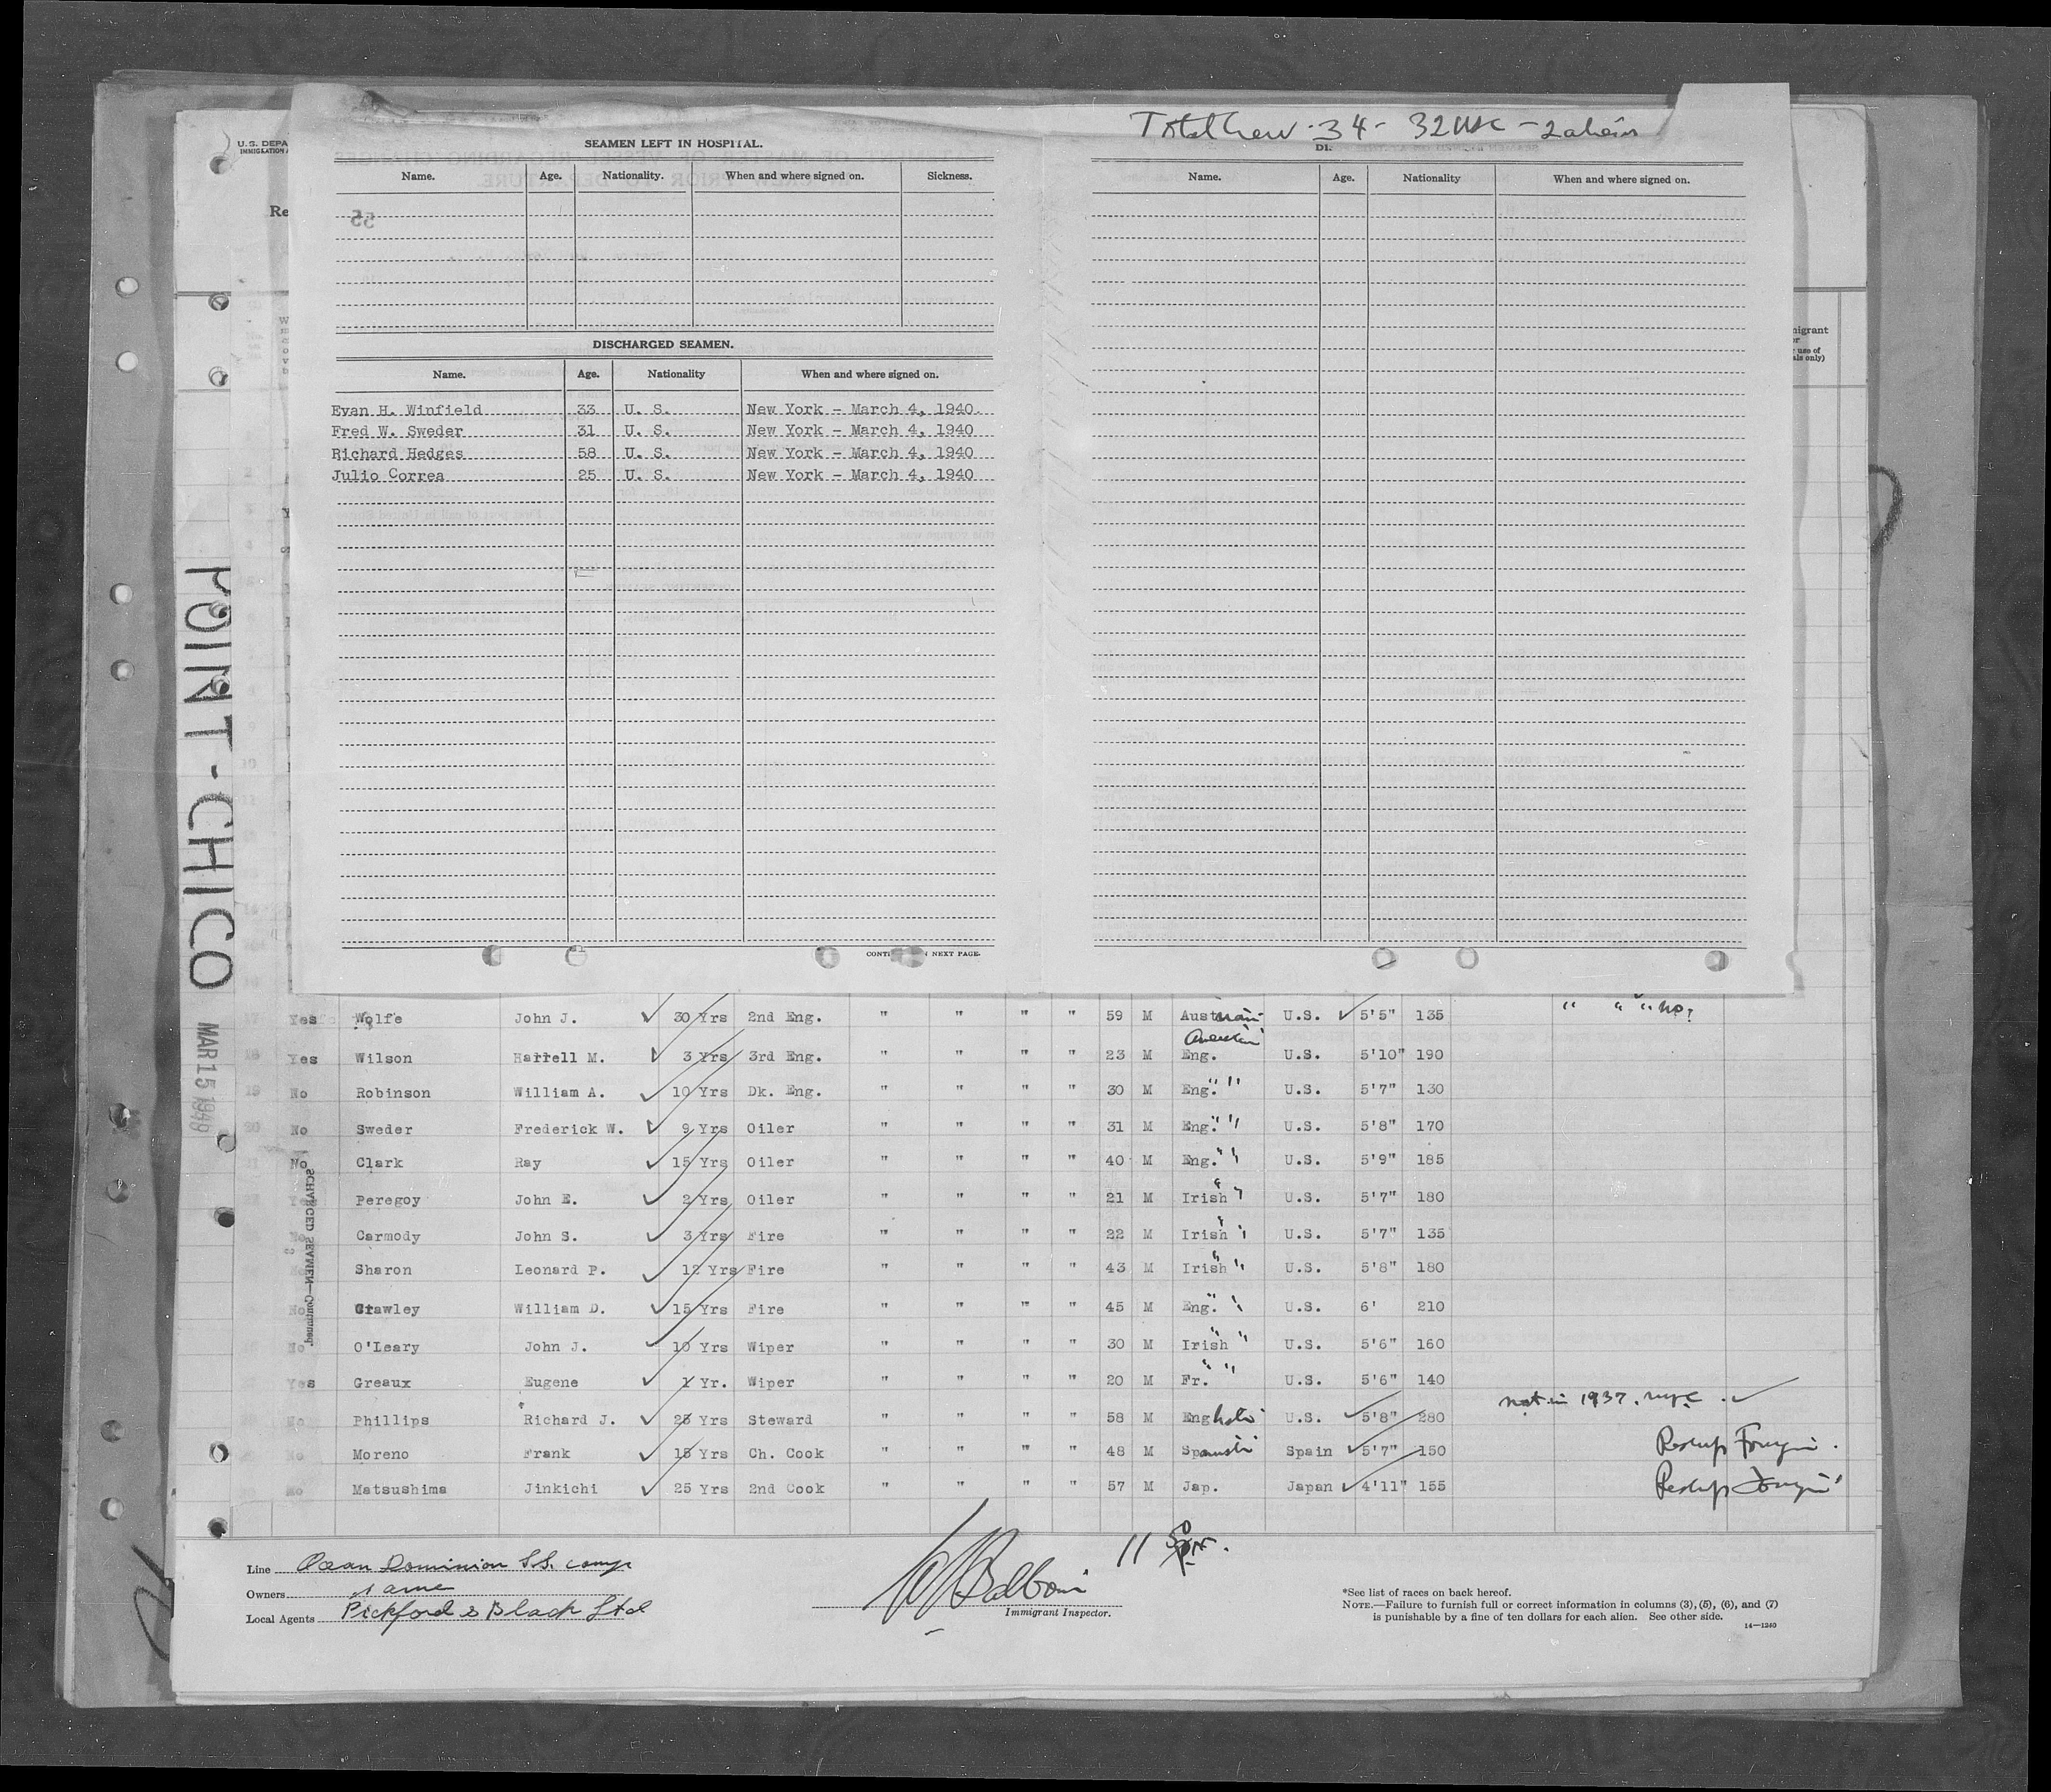 Total Crew - 34 - 32 USC - 2 aliens
U.S. DEPA
IMMIGRATION
SEAMEN LEFT IN HOSPITAL.
Name. Age. Nationality. When and where signed on. Sickness.
55
Re
DISCHARGED SEAMEN.
Name. Age. Nationality When and where signed on.
Evan H. Winfield 33 U. S. New York - March 4, 1940.
Fred W. Sweder 31 U. S. New York - March 4, 1940
Richard Hedges 58 U. S. New York - March 4, 1940
Julio Correa 25 U. S. New York - March 4, 1940
CONTI N NEXT PAGE.
DI
Name. Age. Nationality When and where signed on.
nigrant
er
r use of
als only)
POINT-CHICO
MAR 15 1940
SCHARGED SEAMEN—Continued.
17 Yes Wolfe John J. ✓ 30 Yrs 2nd Eng. " " " " 59 M Austrian U.S. ✓ 5'5" 135 " " " no?
American
18 Yes Wilson Harrell M. ✓ 3 Yrs 3rd Eng. " " " " 23 M Eng. U.S. 5'10" 190
19 No Robinson William A. ✓ 10 Yrs Dk. Eng. " " " " 30 M Eng. " " U.S. 5'7" 130
20 No Sweder Frederick W. ✓ 9 Yrs Oiler " " " " 31 M Eng. " " U.S. 5'8" 170
No Clark Ray ✓ 15 Yrs Oiler " " " " 40 M Eng. " " U.S. 5'9" 185
Yes Peregoy John E. ✓ 2 Yrs Oiler " " " " 21 M Irish " U.S. 5'7" 180
No Carmody John S. ✓ 3 Yrs Fire " " " " 22 M Irish " U.S. 5'7" 135
No Sharon Leonard P. ✓ 12 Yrs Fire " " " " 43 M Irish " " U.S. 5'8" 180
No Crawley William D. ✓ 15 Yrs Fire " " " " 45 M Eng. " " U.S. 6' 210
No O'Leary John J. ✓ 10 Yrs Wiper " " " " 30 M Irish " " U.S. 5'6" 160
Yes Greaux Eugene ✓ 1 Yr. Wiper " " " " 20 M Fr. " " U.S. 5'6" 140
No Phillips Richard J. ✓ 25 Yrs Steward " " " " 58 M English U.S. ✓ 5'8" 280 nat. in 1937. nyc. ✓
No Moreno Frank ✓ 15 Yrs Ch. Cook " " " " 48 M Spanish Spain ✓ 5'7" 150 Reship Foreign.
No Matsushima Jinkichi ✓ 25 Yrs 2nd Cook " " " " 57 M Jap. Japan ✓ 4'11" 155 Reship Foreign
Line Ocean Dominion S.S. Comp
Owners same
Local Agents Pickford & Black Ltd
Immigrant Inspector.
11
*See list of races on back hereof.
NOTE.—Failure to furnish full or correct information in columns (3), (5), (6), and (7)
is punishable by a fine of ten dollars for each alien. See other side.
14—1240